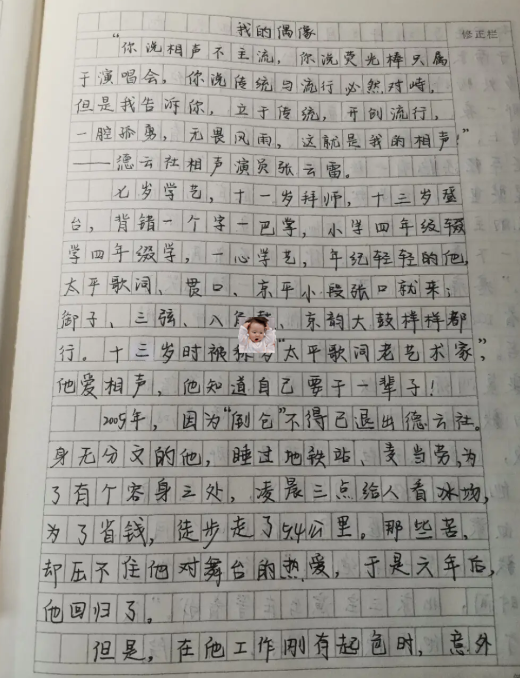 我的偶像
修正栏
“你说相声不主流，你说荧光棒只属
于演唱会，你说传统与流行必然对峙，
但是我告诉你，立于传统，开创流行，
一腔孤勇，无畏风雨，这就是我的相声！”
——德云社相声演员张云雷。
七岁学艺，十一岁拜师，十三岁登
台，背错一个字一巴掌，小学四年级辍
学四年缀学，一心学艺，年纪轻轻的他，
太平歌词、贯口、京平小段张口就来；
御子、三弦、八角鼓、京韵大鼓样样都
行。十三岁时被称为“太平歌词老艺术家”，
他爱相声，他知道自己要干一辈子！
2005年，因为“倒仓”不得已退出德云社。
身无分文的他，睡过地铁站、麦当劳，为
了有个容身之处，凌晨三点给人看冰场，
为了省钱，徒步走了5.4公里。那些苦，
却压不住他对舞台的热爱，于是六年后，
他回归了。”
但是，在他工作刚有起色时，意外